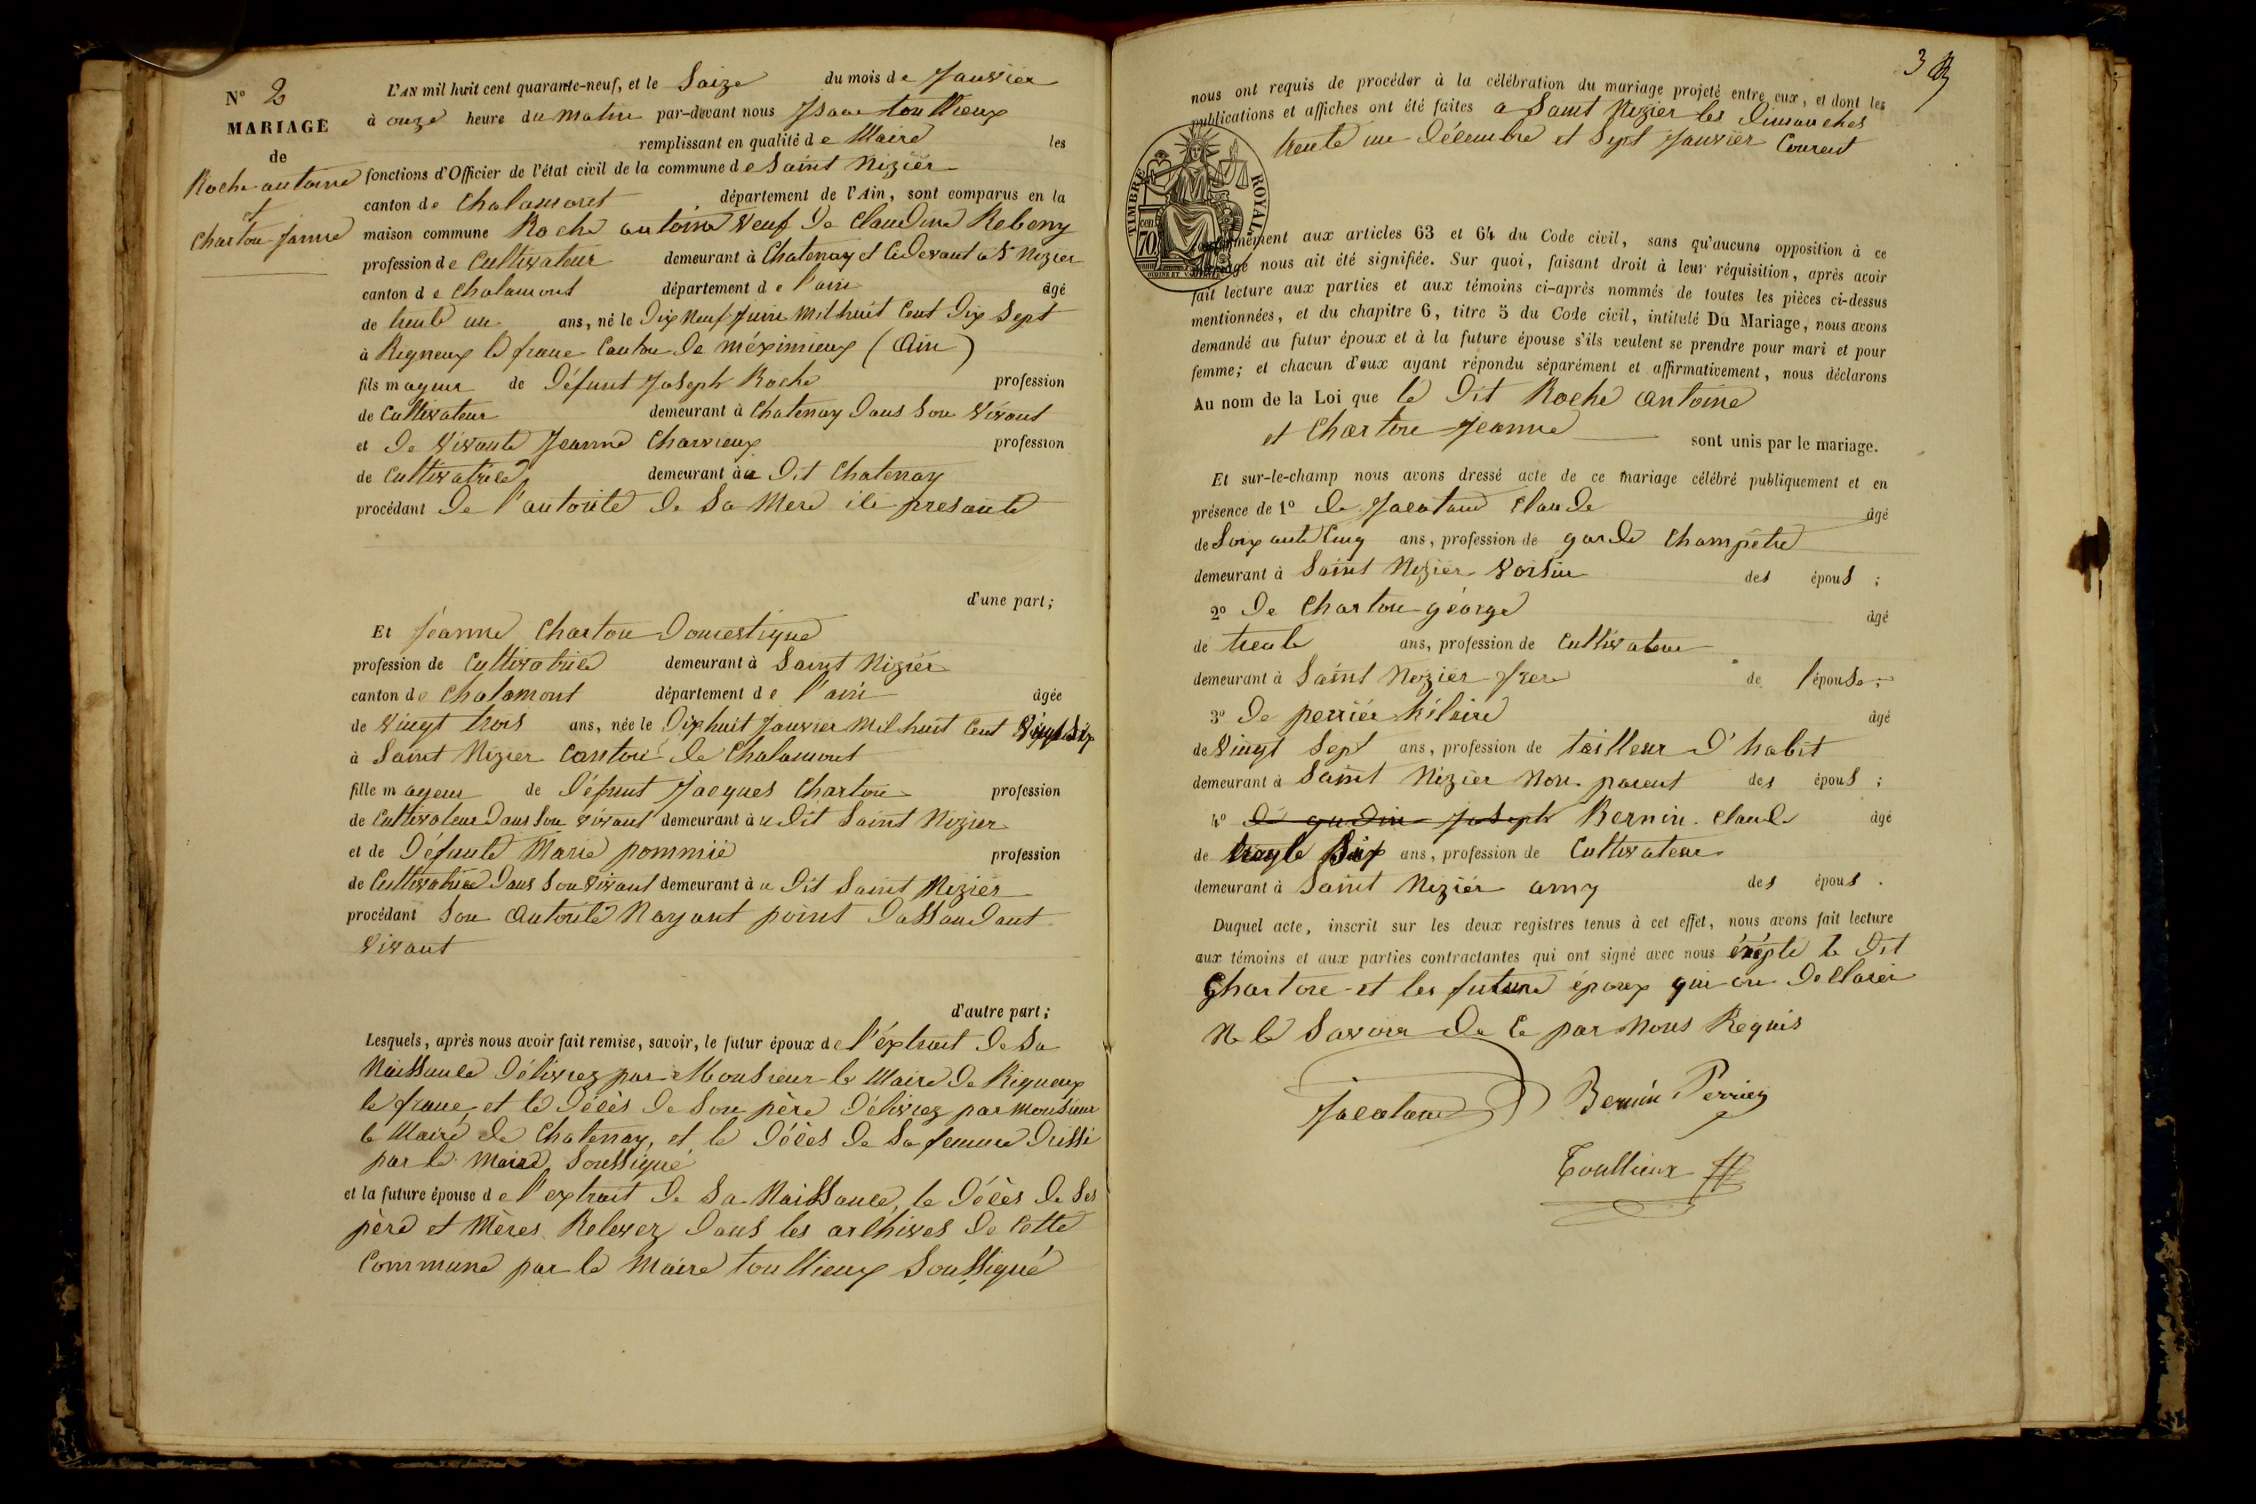 N° 2
MARIAGE
de
Roche antoine
et
Charton Janne
L'AN mil huit cent quarante-neuf, et le Saize du mois de Janvier
à onze heure du Matin par-devant nous Isaac toullieux
remplissant en qualité de Maire les
fonctions d'Officier de l'état civil de la commune de Saint Nizier
canton de Chalamont département de l'Ain, sont comparus en la
maison commune Roche antoine Veuf De Claudine Rebeny
profession de Cultivateur demeurant à Chatenay et Cidevant à St Nizier
canton de Chalamont département de l'ain âgé
de trente un ans, né le Dix Neuf Juin Mil huit Cent Dix Sept
à Rigneux le franc Canton De méximieux (Ain)
fils mageur de Défunt Joseph Roche profession
de Cultivateur demeurant à Chatenay Dans Son Vivant
et De Vivante Jeanne Charvieux profession
de Cultivatrice demeurant àu Dit Chatenay
procédant De l'autorité De Sa Mere ici presante
d'une part;
Et Jeanne Charton Domestique
profession de Cultivatrice demeurant à Saint Nizier
canton de Chalamont département de l'ain âgée
de Vingt trois ans, née le Dix huit Janvier Mil huit Cent Vingt Six
à Saint Nizier Canton De Chalamont
fille mageur de Défunt Jacques Charton profession
de Cultivateur Dans Son vivant demeurant àu Dit Saint Nizier
et de Défunte Marie pommié profession
de Cultivatrice Dans Son Vivant demeurant àu Dit Saint Nizier
procédant Son Autorité Nayant point Dassandant
Vivant
d'autre part;
Lesquels, après nous avoir fait remise, savoir, le futur époux de l'éxtrait De Sa
Naissance Délivrez par Monsieur le Maire De Rigneux
le franc, et le Décès De Son père Délivrez par Monsieur
le Maire de Chatenay, et le Décès De Sa femme Drissi
par le Maire Soussigné
et la future épouse de l'extrait De Sa Naissance, le Décès De Ses
père et Mères Relevez Dans les archives De Cette
Commune par le Maire toullieux Soussigné
3
nous ont requis de procéder à la célébration du mariage projeté entre eux, et dont les
publications et affiches ont été faites a Saint Nizier les Dimanches
trente un Décembre et Sept Janvier Courent
TIMBRE ROYAL
cent 70
conformément aux articles 63 et 64 du Code civil, sans qu'aucune opposition à ce
mariage nous ait été signifiée. Sur quoi, faisant droit à leur réquisition, après avoir
fait lecture aux parties et aux témoins ci-après nommés de toutes les pièces ci-dessus
mentionnées, et du chapitre 6, titre 5 du Code civil, intitulé Du Mariage, nous avons
demandé au futur époux et à la future épouse s'ils veulent se prendre pour mari et pour
femme; et chacun d'eux ayant répondu séparément et affirmativement, nous déclarons
Au nom de la Loi que le Dit Roche antoine
et Charton Jeanne sont unis par le mariage.
Et sur-le-champ nous avons dressé acte de ce mariage célébré publiquement et en
présence de 1° de Jacataud Claude âgé
de Soixante Cinq ans, profession de garde Champêtre
demeurant à Saint Nizier Voisin des épous ;
2° De Charton géorge âgé
de trente ans, profession de Cultivateur
demeurant à Saint Nizier frere de lépouse ;
3° De perrier hilaire âgé
de Vingt Sept ans, profession de tailleur D'habit
demeurant à Saint Nizier Non parent des épous ;
4° De gudin Joseph Bernin Claude âgé
de trente Six ans, profession de Cultivateur
demeurant à Saint Nizier amy des épous .
Duquel acte, inscrit sur les deux registres tenus à cet effet, nous avons fait lecture
aux témoins et aux parties contractantes qui ont signé avec nous éxépte le Dit
Charton et les future époux qui on Declarer
Ne le Savoir De Ce par Nous Requis
Jacataud Bernin Perrier
Toullieux